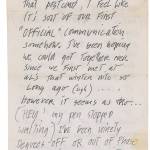 that postcard, I feel like
it's sort of our first
"official" communication
somehow. I've been hoping
we could get together ever
since we first met at
that winter into so
long ago (ugh)....
However it seems as tho...
(HEY! my pen stopped
waiting) I've been
off or out of phase